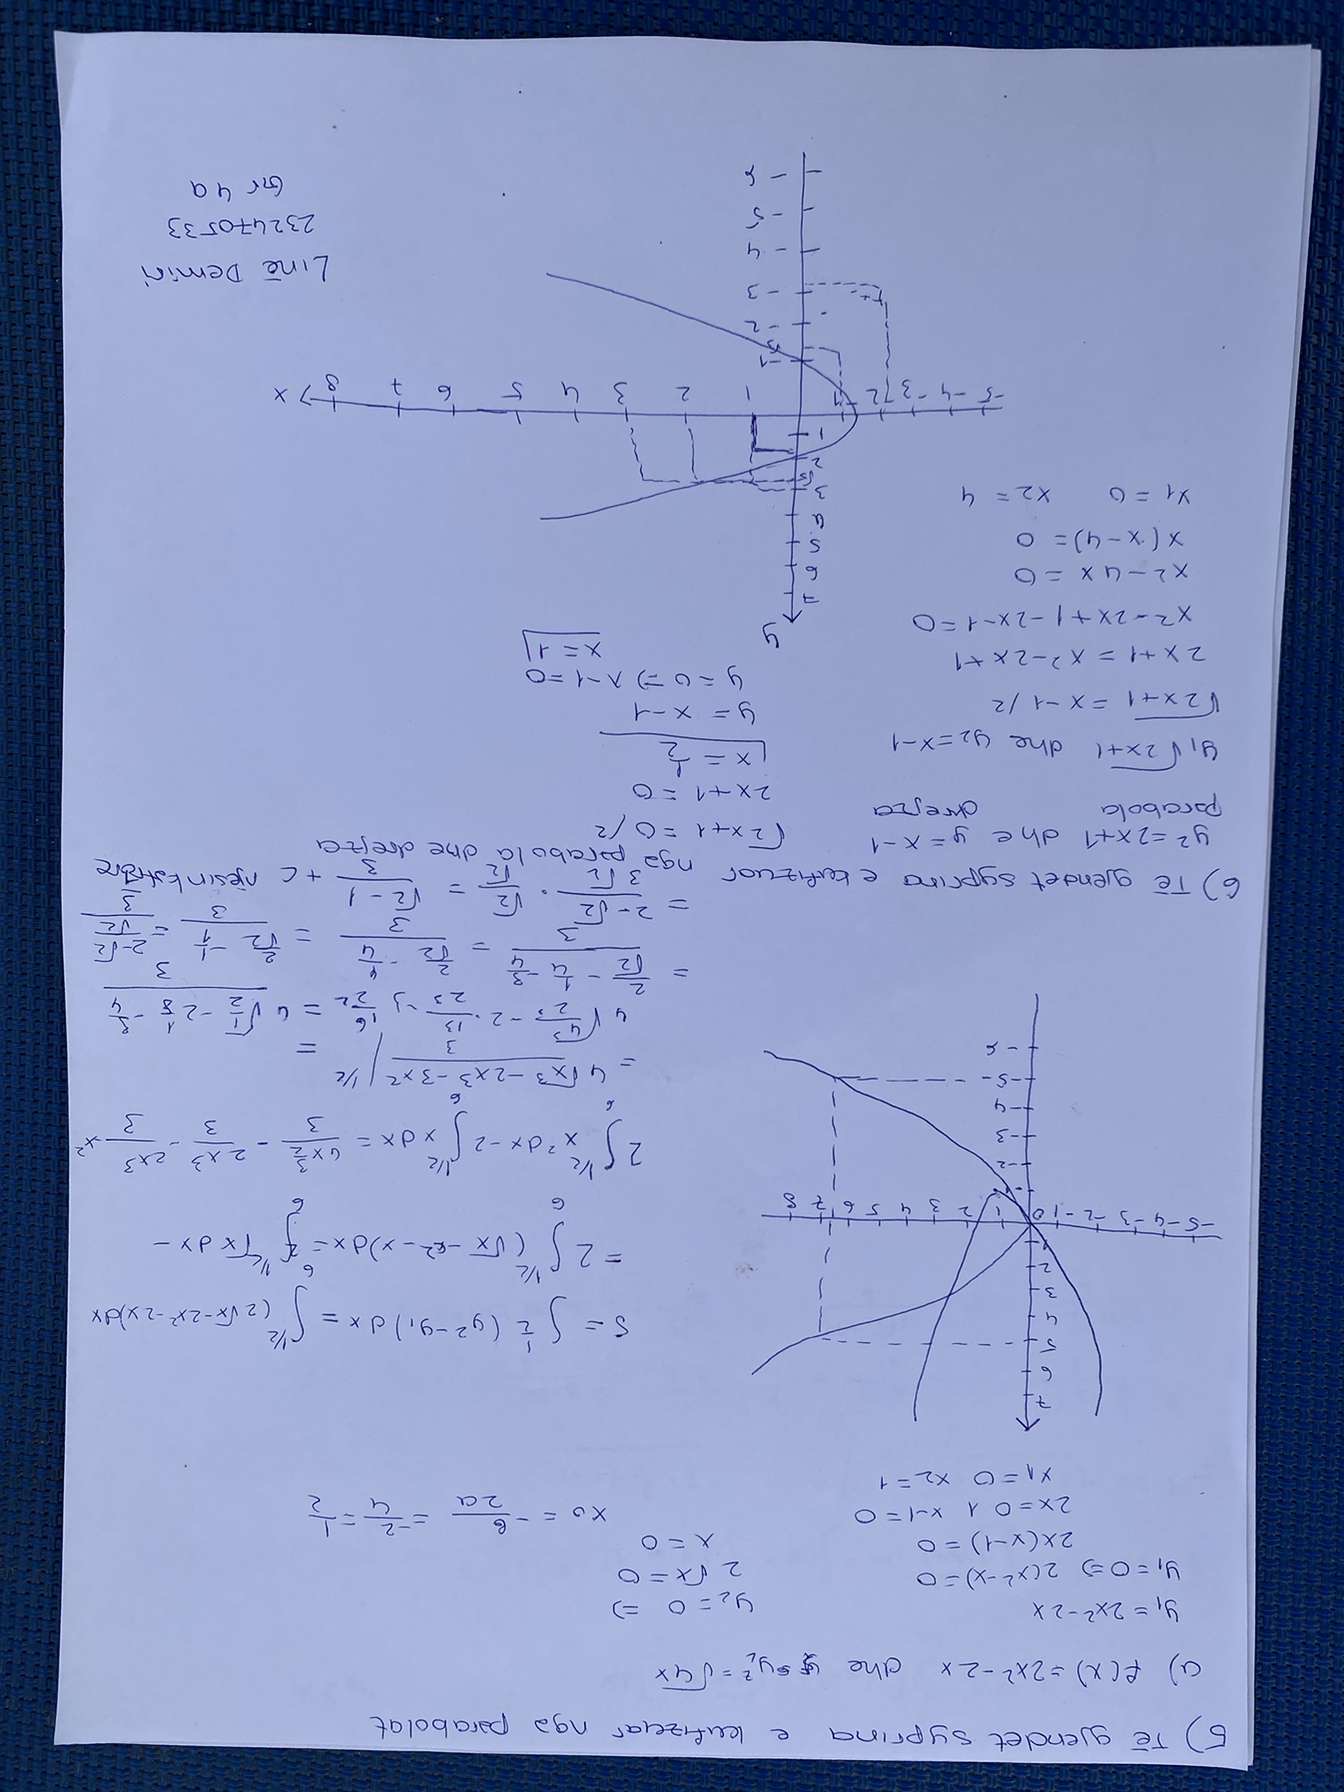 5) Të gjendet syprina e kufizuar nga parabolat
a) f(x) = 2x² - 2x dhe y₂² = √4x
y₁ = 2x² - 2x
y₁ = 0 => 2(x² - x) = 0
2x(x-1) = 0
2x = 0 ∧ x-1 = 0
x₁ = 0 x₂ = 1
y₂ = 0 =>
2√x = 0
x = 0
x₀ = -b/2a = -2/4 = 1/2
7
6
5
4
3
2
1
-5 -4 -3 -2 -1 0 1 2 3 4 5 6 7 8
-1
-2
-3
-4
-5
-6
S = ∫ 1/2 (y2 - y₁) dx = ∫^1/2 (2√x - 2x² - 2x) dx
= 2 ∫^1/2 (√x - x² - x) dx = ∫^1/2 √x dx -
2 ∫^1/2 x² dx - 2 ∫^1/2 x dx = 4x 3/2 / 3 - 2x³/3 - 2x³/3 - x²
= 4√x³ - 2x³ - 3x² / 3 |^1/2 =
= 4√1/2 - 2 1/8 - 3/4 / 3
= 2/√2 - 1/4 - 3/4 / 3 = 2/√2 - 4/4 / 3 = 2/√2 - 1/1 / 3 = 2-√2 / √2 / 3
= 2-√2 / 3√2 · √2/√2 = √2 - 1 / 3 + c
6) Të gjendet syprina e kufizuar nga parabola dhe drejza
y² = 2x+1 dhe y = x-1
parabola drejza
y₁ √2x+1 dhe y₂ = x-1
√2x+1 = x-1 /2
2x+1 = x²-2x+1
x² - 2x + 1 - 2x - 1 = 0
x² - 4x = 0
x(x-4) = 0
x₁ = 0 x₂ = 4
√2x+1 = 0 /2
2x+1 = 0
x = 1/2
y = x-1
y = 0 => x-1 = 0
x = 1
y
7
6
5
4
3
√5
2
1
-5 -4 -3 -2 -1 1 2 3 4 5 6 7 8 x
-1
√3
-2
-3
-4
-5
-6
Linë Demiri
232470533
Gr 4a